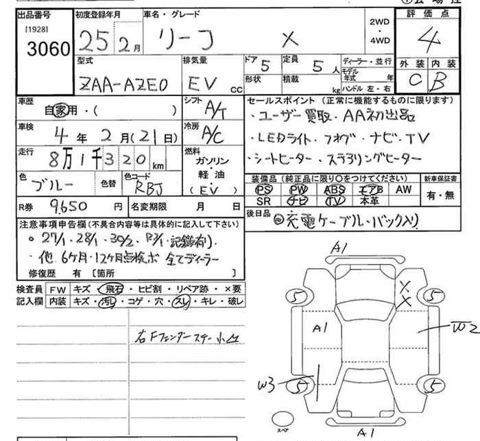 出品番号 初度登録年月 車名・グレード 2WD ・4WD 評価点
[1928]
3060 25年2月 リーフ X 4
型式 排気量 ドア 5 定員 5人 ディーラー・並行 外装 内装
ZAA-AZE0 EV cc 形状 積載 kg モデル年式 年 ハンドル 左・右 C B
車歴 自家用・( ) シフト A/T セールスポイント(正常に機能するものに限ります)
・ユーザー買取・AA初出品
車検 4年2月(21日) 冷房 A/C ・LEDライト・フォグ・ナビ・TV
走行 8万1千320km 燃料 ガソリン 軽油 (EV) ・シートヒーター・ステアリングヒーター
装備品(純正品に限り○をつけてください) 新車保証書
色 ブルー 色替 カラーNo. RBJ PS PW ABS エアB AW 有・無
SR ナビ TV 本革
R券 9,650円 名変期限 月 日 後日品 充電ケーブル・バック入り
注意事項申告欄(不具合内容等は具体的に記入して下さい)
○27/1・28/1・30/2・R/1・記録有)
・他 6ヶ月・12ヶ月点検も全てディーラー
修復歴 有 [箇所 ]
検査員記入欄 FW キズ・飛石・ヒビ割・リペア跡・×要
内装 キズ・汚レ・コゲ・穴・スレ・キレ・破レ
右Fフェンダーステー小凸
A1
5 5
X
X
A1 W2
W3
5 5
スペア
A1